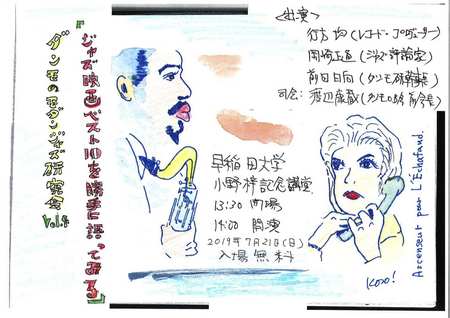 ダンモのモダンジャズ研究会 Vol.4
『ジャズ映画ベスト10を勝手に語ってみる』
<出演>
行方均(レコード・プロデューサー)
岡崎正通(ジャズ評論家)
前田日向(ダンモ
司会:渡辺康蔵(ダンモOB会
早稲田大学
小野梓記念講堂
13:30 開場
14:00 開演
2019年7月21日(日)
入場無料
Ascenseur pour L'Échafaud.
KOZO!